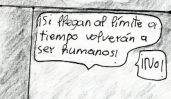 ¡Si llegan al límite a
tiempo volverán a
ser humanos!
¡NO!